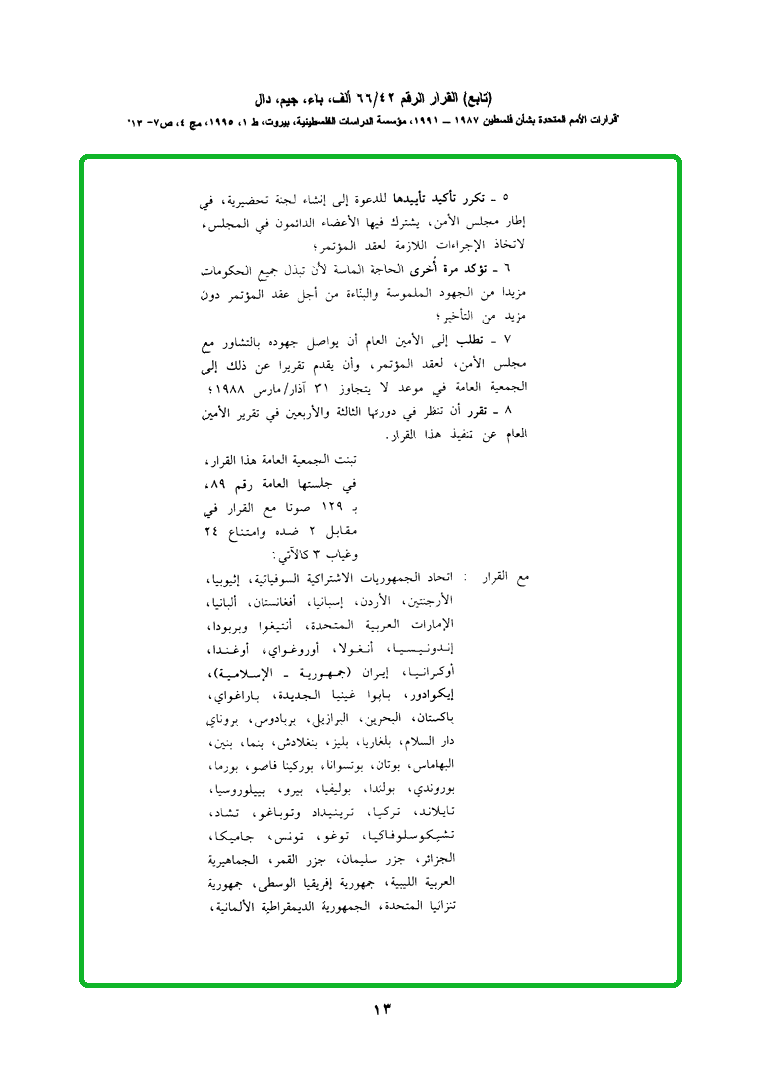 (تابع) القرار الرقم ٦٦/٤٢ ألف، باء، جيم، دال
"قرارات الأمم المتحدة بشأن فلسطين ١٩٨٧ – ١٩٩١، مؤسسة الدراسات الفلسطينية، بيروت، ط ١، ١٩٩٥، مج ٤، ص٧- ١٣"
٥ ـ تكرر تأكيد تأييدها للدعوة إلى إنشاء لجنة تحضيرية، في
إطار مجلس الأمن، يشترك فيها الأعضاء الدائمون في المجلس،
لاتخاذ الإجراءات اللازمة لعقد المؤتمر؛
٦ ـ تؤكد مرة أُخرى الحاجة الماسة لأن تبذل جميع الحكومات
مزيدا من الجهود الملموسة والبنّاءة من أجل عقد المؤتمر دون
مزيد من التأخير؛
٧ ـ تطلب إلى الأمين العام أن يواصل جهوده بالتشاور مع
مجلس الأمن، لعقد المؤتمر، وأن يقدم تقريرا عن ذلك إلى
الجمعية العامة في موعد لا يتجاوز ٣١ آذار/مارس ١٩٨٨؛
٨ ـ تقرر أن تنظر في دورتها الثالثة والأربعين في تقرير الأمين
العام عن تنفيذ هذا القرار.
تبنت الجمعية العامة هذا القرار،
في جلستها العامة رقم ٨٩،
بـ ١٢٩ صوتا مع القرار في
مقابل ٢ ضده وامتناع ٢٤
وغياب ٣ كالآتي:
مع القرار : اتحاد الجمهوريات الاشتراكية السوفياتية، إثيوبيا،
الأرجنتين، الأردن، إسبانيا، أفغانستان، ألبانيا،
الإمارات العربية المتحدة، أنتيغوا وبربودا،
إندونيسيا، أنغولا، أوروغواي، أوغندا،
أوكرانيا، إيران (جمهورية ـ الإسلامية)،
إيكوادور، بابوا غينيا الجديدة، باراغواي،
باكستان، البحرين، البرازيل، بربادوس، بروناي
دار السلام، بلغاريا، بليز، بنغلادش، بنما، بنين،
البهاماس، بوتان، بوتسوانا، بوركينا فاصو، بورما،
بوروندي، بولندا، بوليفيا، بيرو، بييلوروسيا،
تايلاند، تركيا، ترينيداد وتوباغو، تشاد،
تشيكوسلوفاكيا، توغو، تونس، جاميكا،
الجزائر، جزر سليمان، جزر القمر، الجماهيرية
العربية الليبية، جمهورية إفريقيا الوسطى، جمهورية
تنزانيا المتحدة، الجمهورية الديمقراطية الألمانية،
١٣